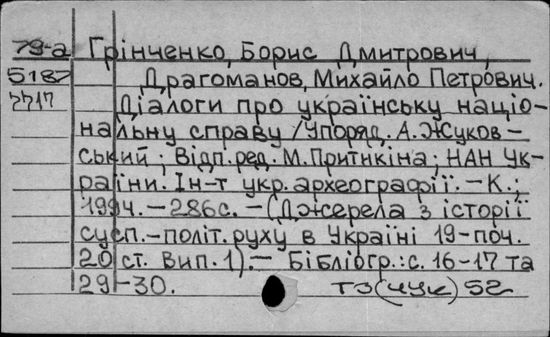 79-а Грінченко, Борис Дмитрович,
5187 Драгоманов, Михайло Петрович.
Діалоги про українську націо-
нальну справу / Упоряд. А. Жуков-
ський; Відп. ред. М. Притикіна; НАН Ук-
раїни. Ін-т укр. археографії. – К.;
1994. – 286с. – (Джерела з історії
сусп.-політ. руху в Україні 19-поч.
20 ст. Вип. 1). – Бібліогр.: с. 16-17 та
29-30. ТЗ(4УК)52